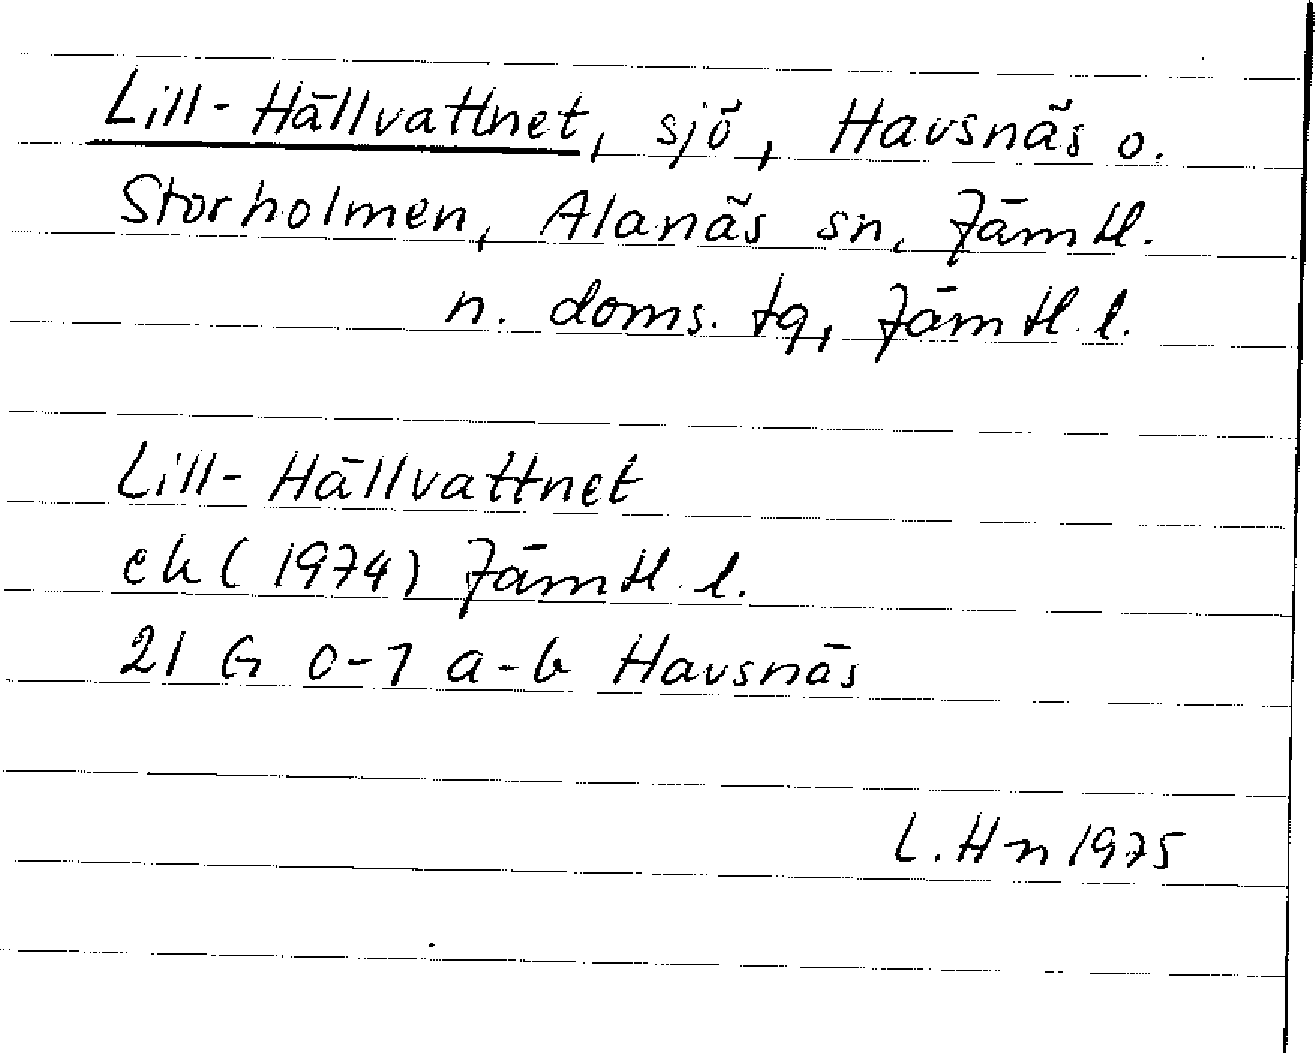 Lill-Hällvattnet, sjö, Havsnäs o.
Storholmen, Alanäs sn, Jämtl.
n. doms. tg, Jämtl. l.
Lill-Hällvattnet
ek (1974) Jämtl. l.
21 G 0-1 a-b Havsnäs
L. Hn 1975